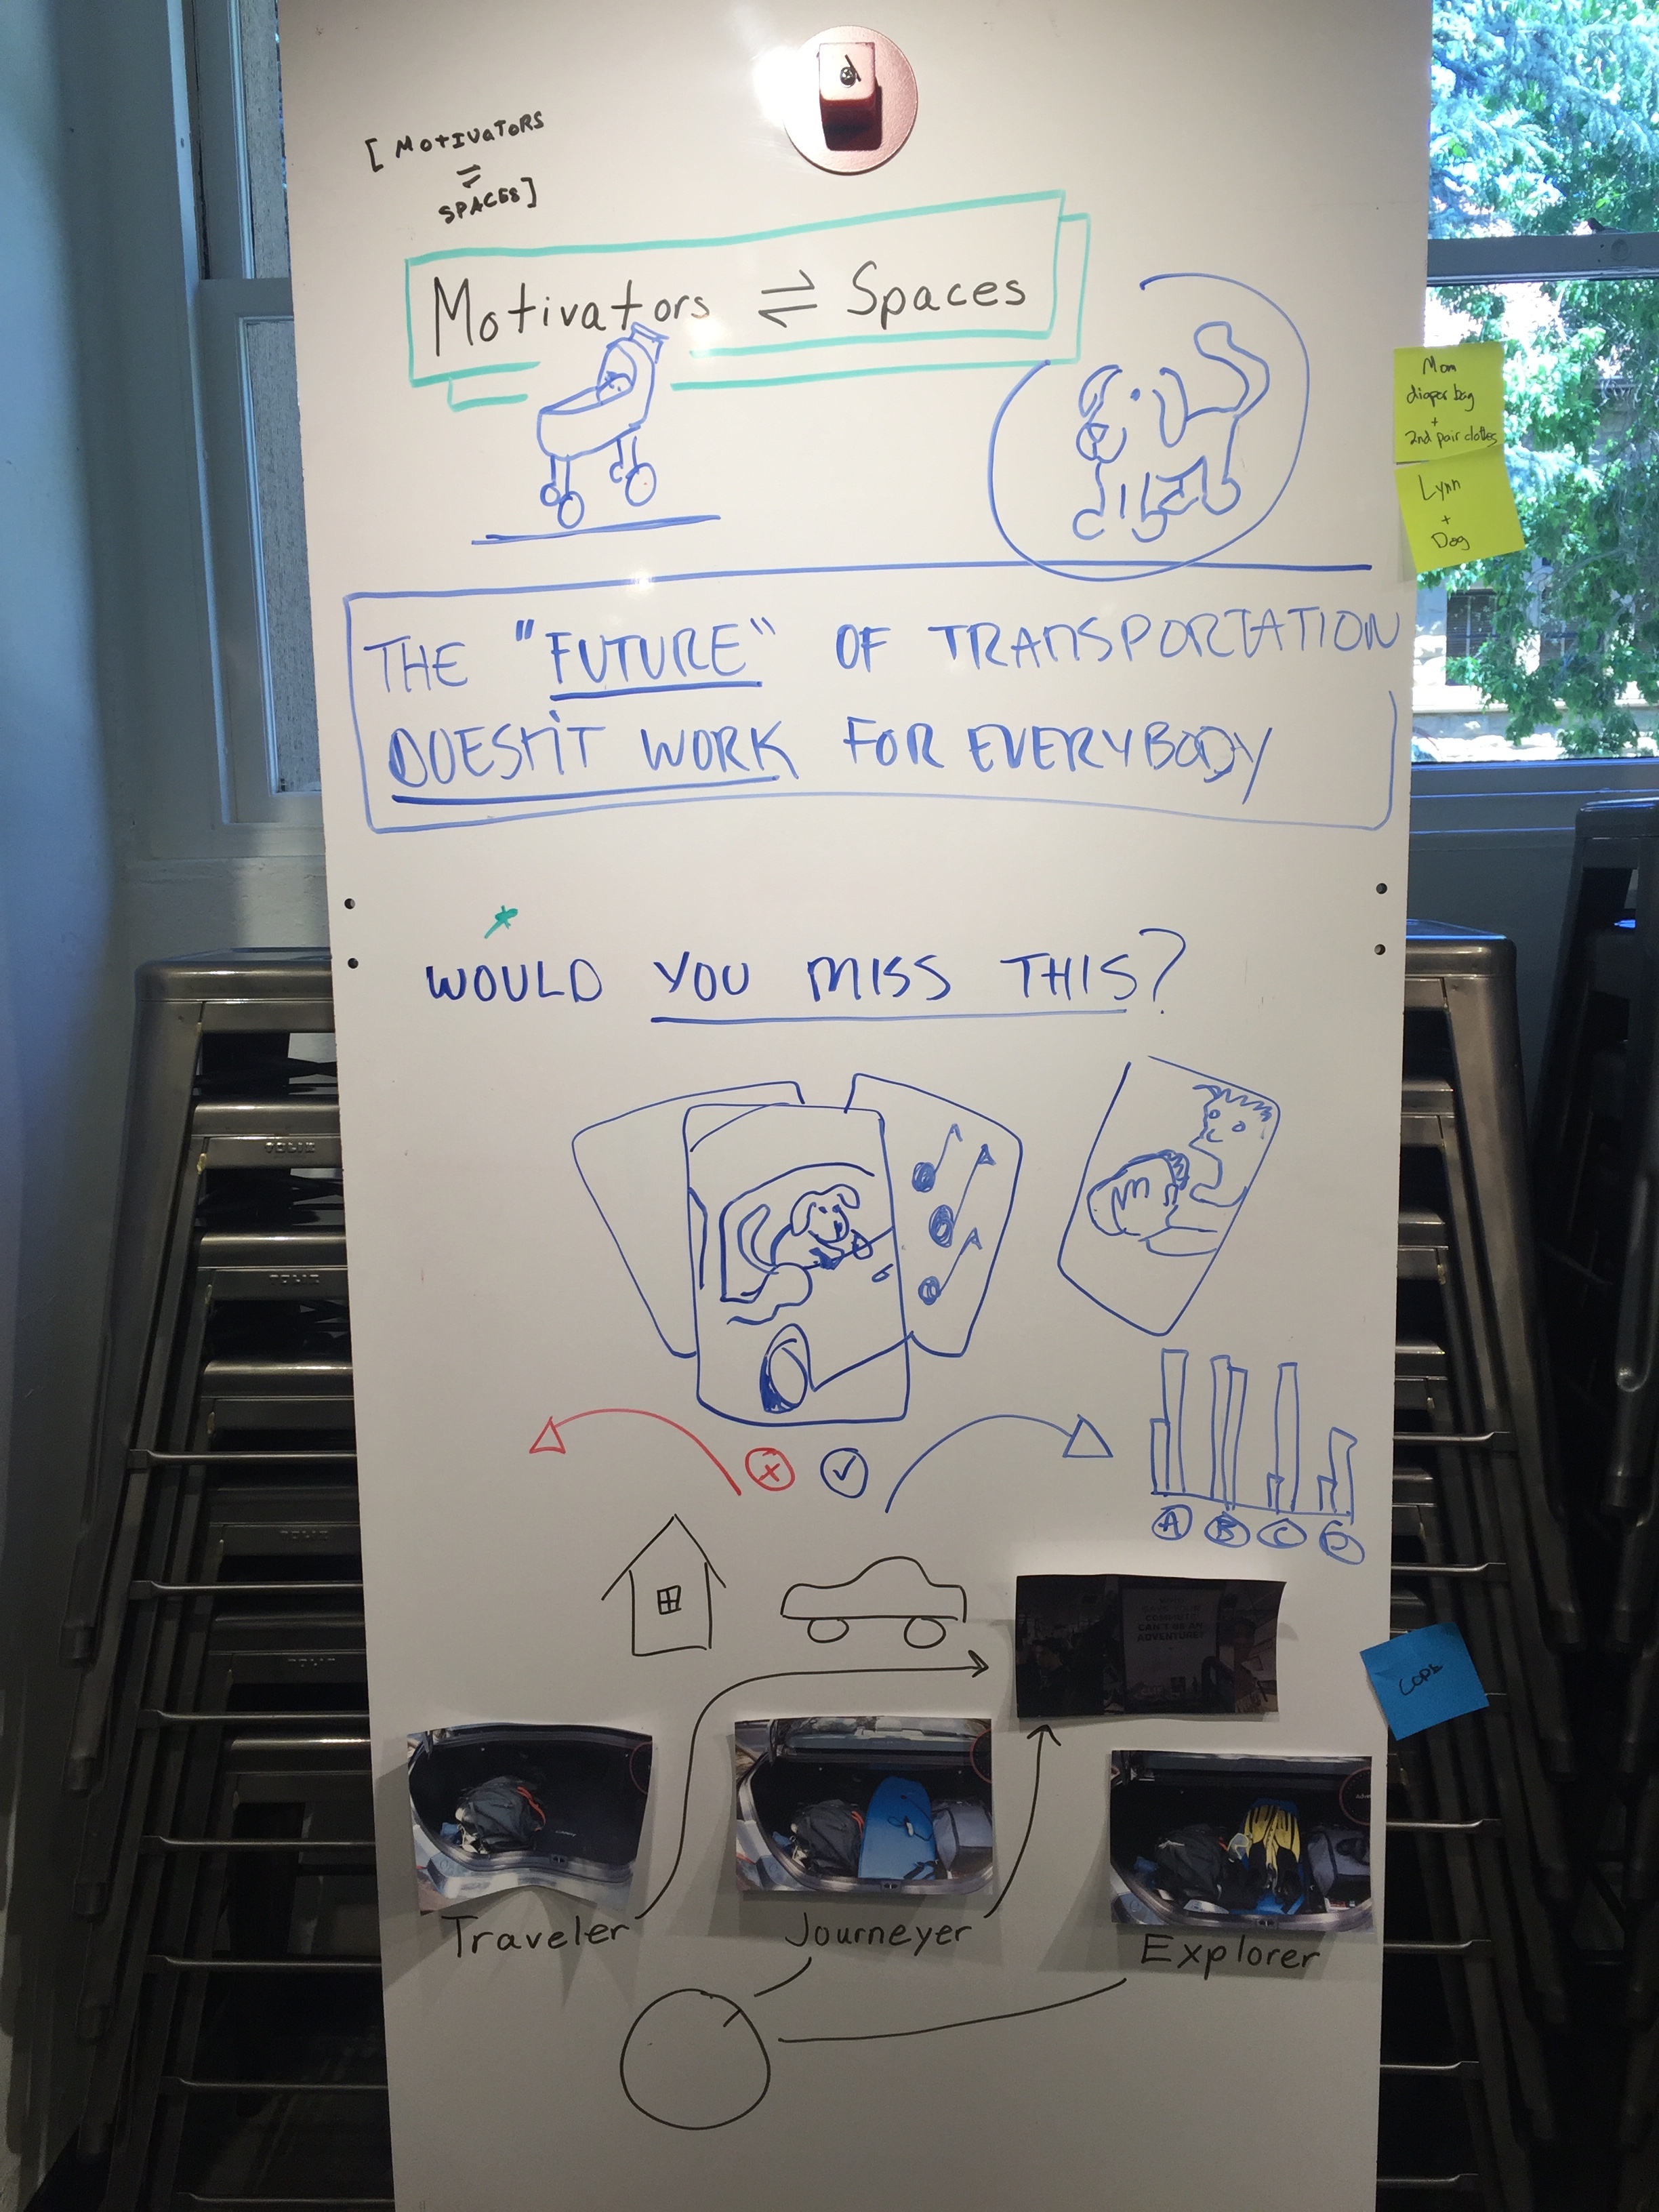 [ MOTIVATORS
⇌
SPACES ]
Motivators ⇌ Spaces
Mom
diaper bag
+
2nd pair clothes
Lynn
+
Dog
THE "FUTURE" OF TRANSPORTATION
DOESN'T WORK FOR EVERYBODY
* WOULD YOU MISS THIS?
A B C D
SAYS YOUR
COMMUTE
CAN'T BE AN
ADVENTURE?
Traveler
Journeyer
Explorer
TOLIX
TOLIX